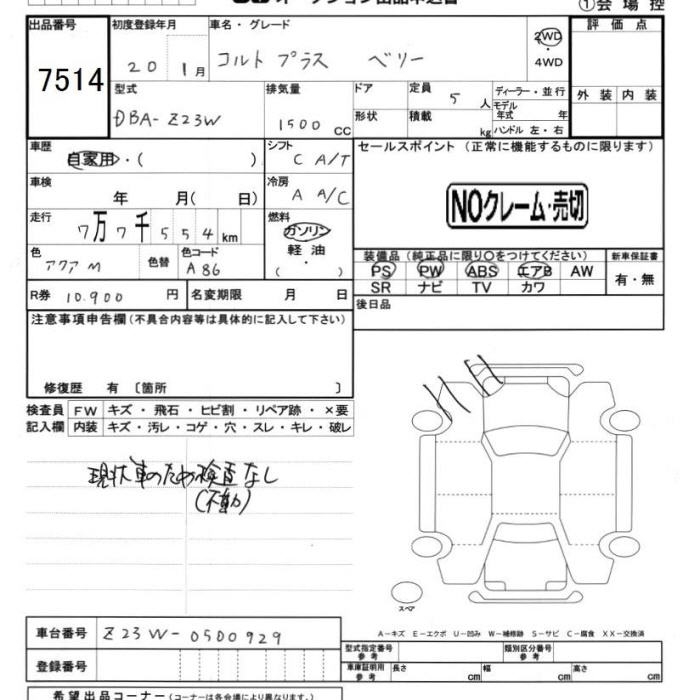 オークション出品申込書
①会場控
出品番号 初度登録年月 車名・グレード 評価点
7514 20 1月 コルト プラス ベリー 2WD
・
4WD
型式 排気量 ドア 定員 5 人 ディーラー・並行 外装 内装
DBA-Z23W 1500 CC 形状 積載 kg モデル年式 年
ハンドル 左・右
車歴 自家用・( ) シフト C A/T セールスポイント (正常に機能するものに限ります)
車検 年 月( 日) 冷房 A A/C
NOクレーム・売切
走行 7万7千554km 燃料 ガソリン
軽油
( ・ )
色 アクアM 色替 色コード A86
装備品 (純正品に限り○をつけてください) 新車保証書
PS PW ABS エアB AW 有・無
SR ナビ TV カワ
R券 10.900 円 名変期限 月 日 後日品
注意事項申告欄(不具合内容等は具体的に記入して下さい)
修復歴 有 〔箇所 〕
検査員 FW キズ・飛石・ヒビ割・リペア跡・×要
記入欄 内装 キズ・汚レ・コゲ・穴・スレ・キレ・破レ
現状車のため検査なし
(不動)
スペア
A-キズ E-エクボ U-凹み W-補修跡 S-サビ C-腐食 XX-交換済
車台番号 Z23W-0500929
型式指定番号 参考 類別区分番号 参考
登録番号 車庫証明用 参考 長さ cm 幅 cm 高さ cm
希望出品コーナー(コーナーは各会場により異なります。)